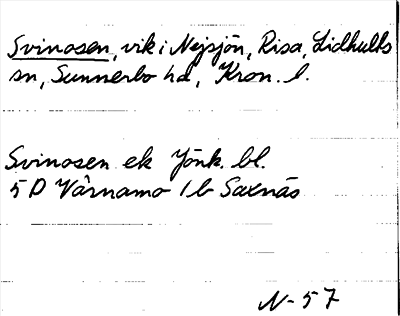 Svinosen, vik i Nejsjön, Risa, Lidhults
sn, Sunnerbo hd, Kron. l.
Svinosen ek Jönk. bl.
5 D Värnamo 1b Saxnäs
N-57